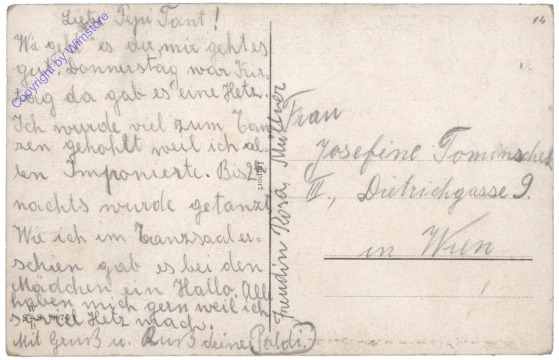 Liebe Pepi Tant!
Wie geht es dir, mir geht es
gut. Donnerstag war Kir-
tag da gab es eine Hetz.
Ich wurde viel zum Tan-
zen gehohlt weil ich al-
len Imponierte. Bis 2h
nachts wurde getanzt
Wie ich im Tanzsaal er-
schien gab es bei den
Mädchen ein Hallo. Alle
haben mich gern weil ich
so viel Hetz mach.
Mit Gruß u. Kuß deine Poldi.
Freundin Rosa Müllner
Import
Frau
Josefine Tominschek
III., Dietrichgasse 9.
in Wien
Copyright by Wimstore